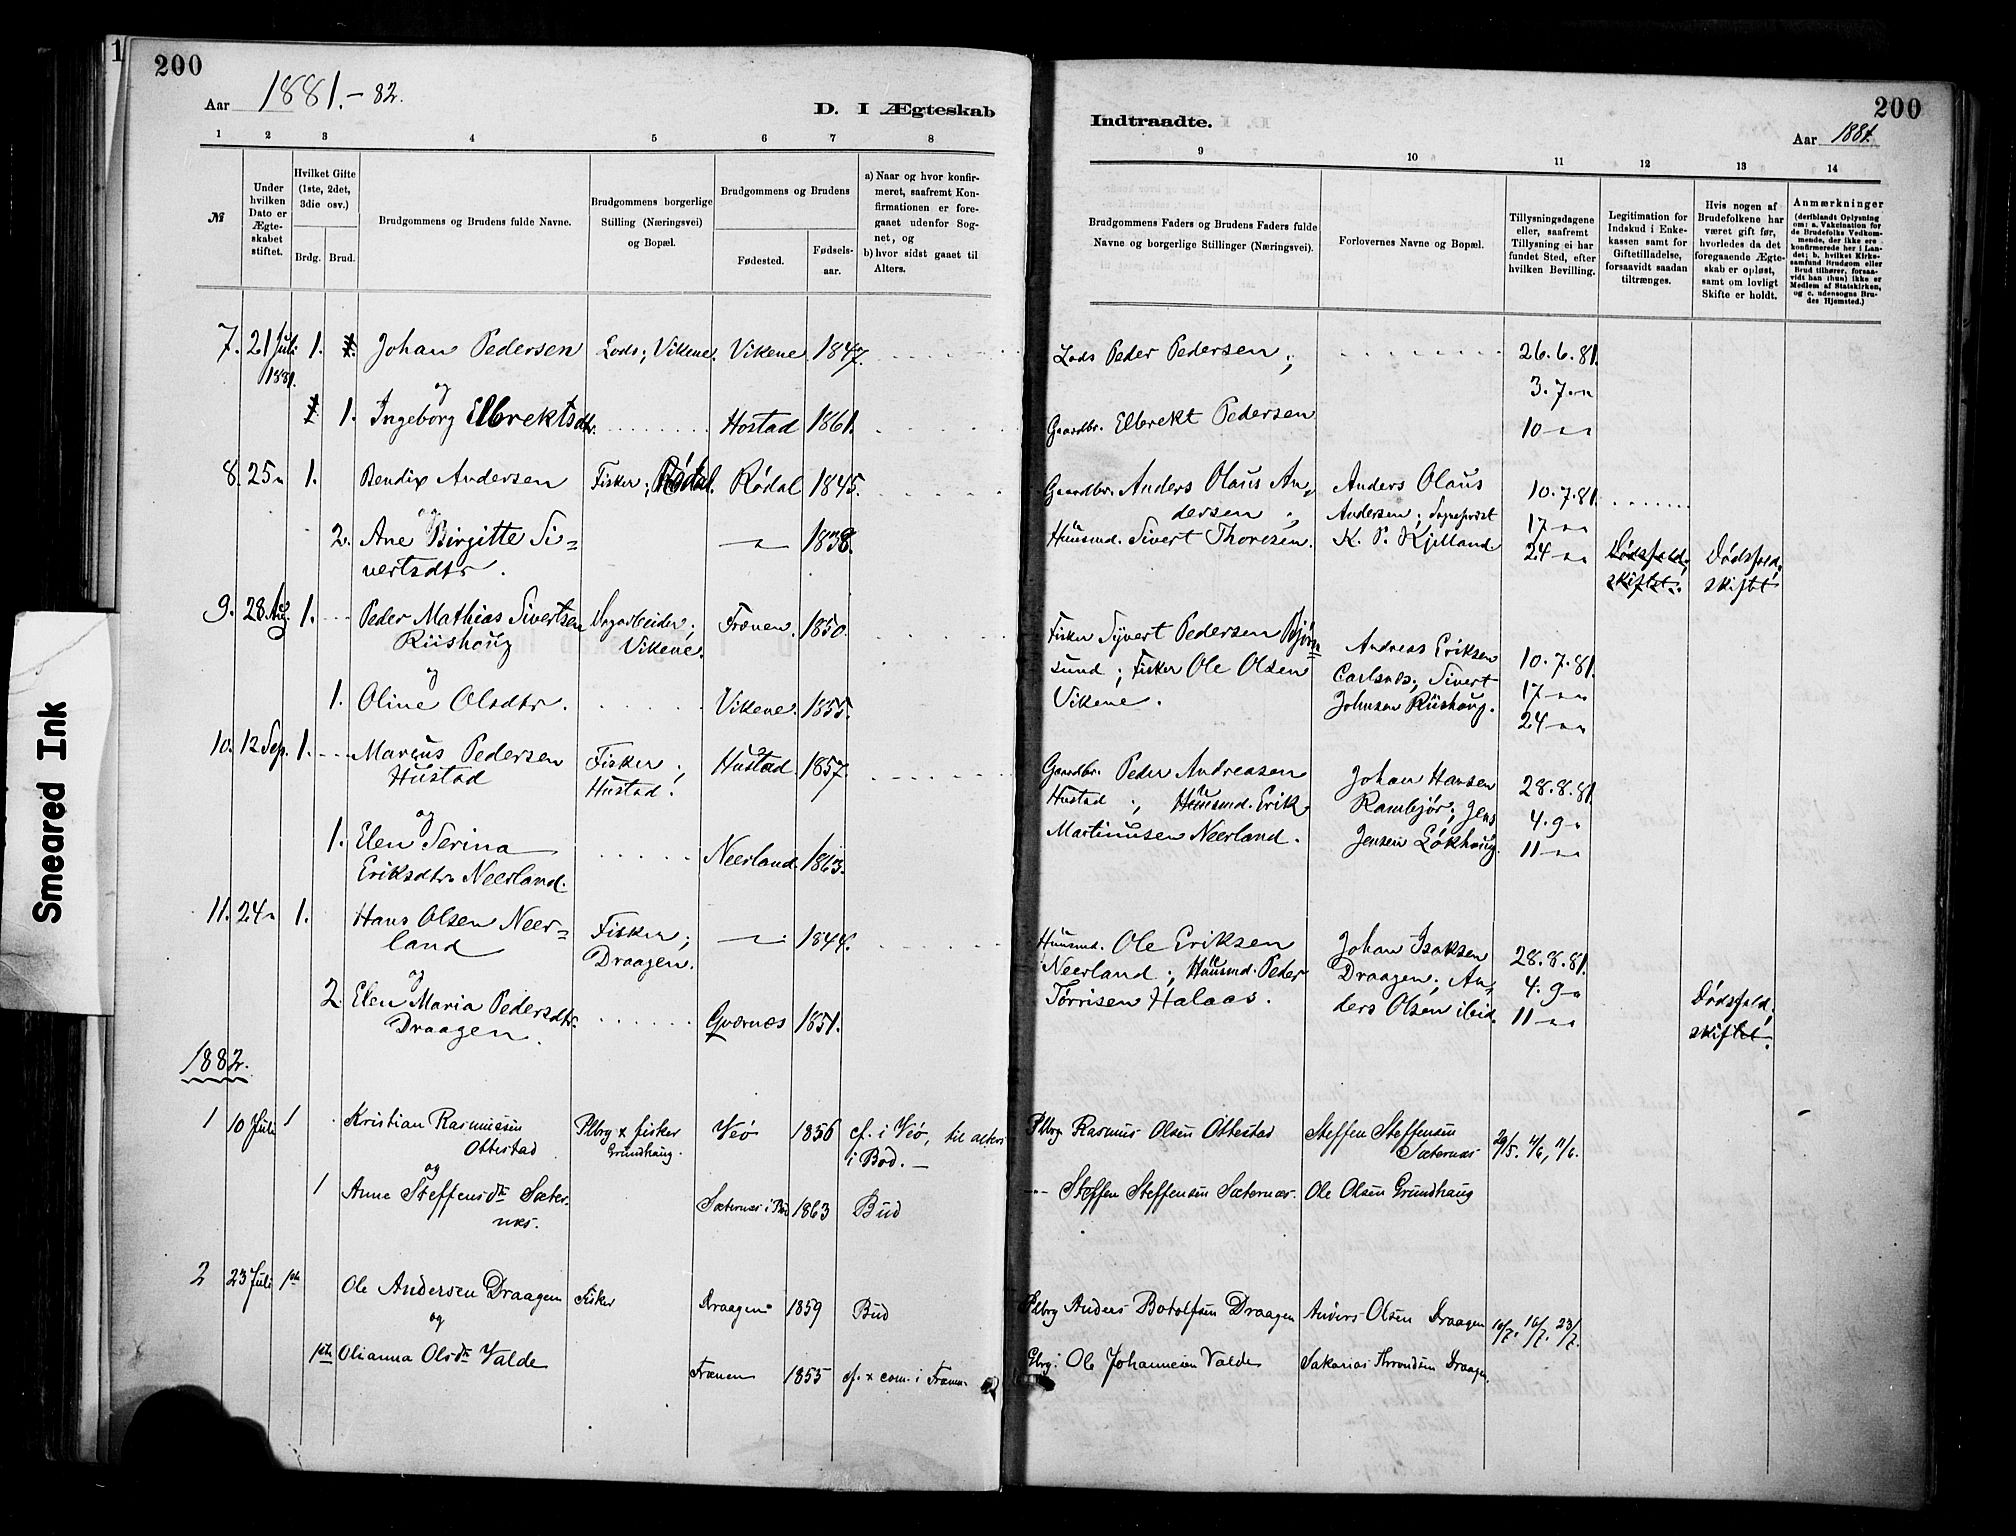 200
Aar 1881.-82.
D. I Ægteskab
1 2 3 4 5 6 7 8
№
Under hvilken Dato er Ægteskabet stiftet.
Hvilket Gifte (1ste, 2det, 3die osv.)
Brdg. Brud.
Brudgommens og Brudens fulde Navne.
Brudgommens borgerlige Stilling (Næringsvei) og Bopæl.
Brudgommens og Brudens
Fødested. Fødselsaar.
a) Naar og hvor konfirmeret, saafremt Konfirmationen er foregaaet udenfor Sognet, og
b) hvor sidst gaaet til Alters.
7. 21 Juli 1. Johan Pedersen Lods; Vikene. Vikene 1847.
1881. og
1. Ingeborg Elbrektsdtr. Hostad 1861.
8. 25 " 1. Bendix Andersen Fisker; Rødal. Rødal 1845.
og
2. Ane Birgitte Si= —"— 1838.
vertsdtr.
9. 28 Aug. 1. Peder Mathias Sivertsen Frænen. 1850.
Riishoug Vikene.
og
1. Oline Olsdtr. Vikene. 1855.
10. 12 Sep. 1. Marcus Pedersen Fisker; Hustad 1857.
Hustad Hustad.
og
1. Elen Serina Neerland 1863.
Eriksdtr. Neerland.
11. 24 " 1. Hans Olsen Neer= Fisker; —"— 1844.
land Draagen.
og
2. Elen Maria Pedersdtr. Gværnæs 1851.
Draagen.
1882.
1 10 Juli 1 Kristian Rasmussen Plbrg & fisker Veø 1856 cf. i Veø, til alters
Ottestad Grundhaug. i Bod.—
og
1 Anne Steffensdtr Sæter- Sæternæs i Bud 1863 Bud
næs.
2 23 Juli 1ste Ole Andersen Draagen Fisker Draagen 1859 Bud
og
1ste Olianna Olsdtr Valde Frænen 1855 cf. & com. i Frænen
200
Indtraadte.
Aar 1881.
9 10 11 12 13 14
Brudgommens Faders og Brudens Faders fulde Navne og borgerlige Stillinger (Næringsvei).
Forlovernes Navne og Bopæl.
Tillysningsdagene eller, saafremt Tillysning ei har fundet Sted, efter hvilken Bevilling.
Legitimation for Indskud i Enkekassen samt for Giftetilladelse, forsaavidt saadan tiltrænges.
Hvis nogen af Brudefolkene har været gift før, hvorledes da det foregaaende Ægteskab er opløst, samt om lovligt Skifte er holdt.
Anmærkninger
(deriblandt Oplysning om: a. Vakcination for de Brudefolks Vedkommende, der ikke ere konfirmerede her i Landet; b. hvilket Kirkesamfund Brudgom eller Brud tilhører, forsaavidt han (hun) ikke er Medlem af Statskirken, og c. udensogns Brudes Hjemsted.)
Lods Peder Pedersen; 26.6.81.
3.7.—"
Gaardbr. Elbrekt Pedersen 10 —"—
Gaardbr. Anders Olaus An= Anders Olaus 10.7.81.
dersen; Andersen; Sognepræst 17 —"—
Huusmd. Sivert Thoresen. K. P. Kjelland. 24 —"— Dødsfald; skiftet. Dødsfald; skiftet
Fisker Syvert Pedersen Bjørn=
sund; Fisker Ole Olsen Andreas Eriksen 10.7.81.
Vikene. Carlsnæs; Sivert 17 —"—
Johnsen Riishoug. 24 —"—
Gaardbr. Peder Andreasen Johan Hansen 28.8.81.
Hustad; Huusmd. Erik Rambjør; Jens 4.9—"
Martinusen Neerland. Jensen Løkhoug. 11 —"—
Huusmd. Ole Eriksen Johan Isaksen 28.8.81.
Neerland; Huusmd. Peder Draagen; An= 4.9—"
Tørrisen Halaas. ders Olsen ibid. 11 —"— Dødsfald; skiftet.
Plbrg Rasmus Olsen Ottestad Steffen Steffensen 29/5. 4/6, 11/6.
Sæternæs
—"— Steffen Steffensen Sæternæs. Ole Olsen Grundhaug
Plbrg Anders Botolfsen Draagen Anders Olsen Draagen 10/7. 16/7. 23/7.
Gbrg. Ole Johannesen Valde Sakarias Throndsen Draagen.
Smeared Ink